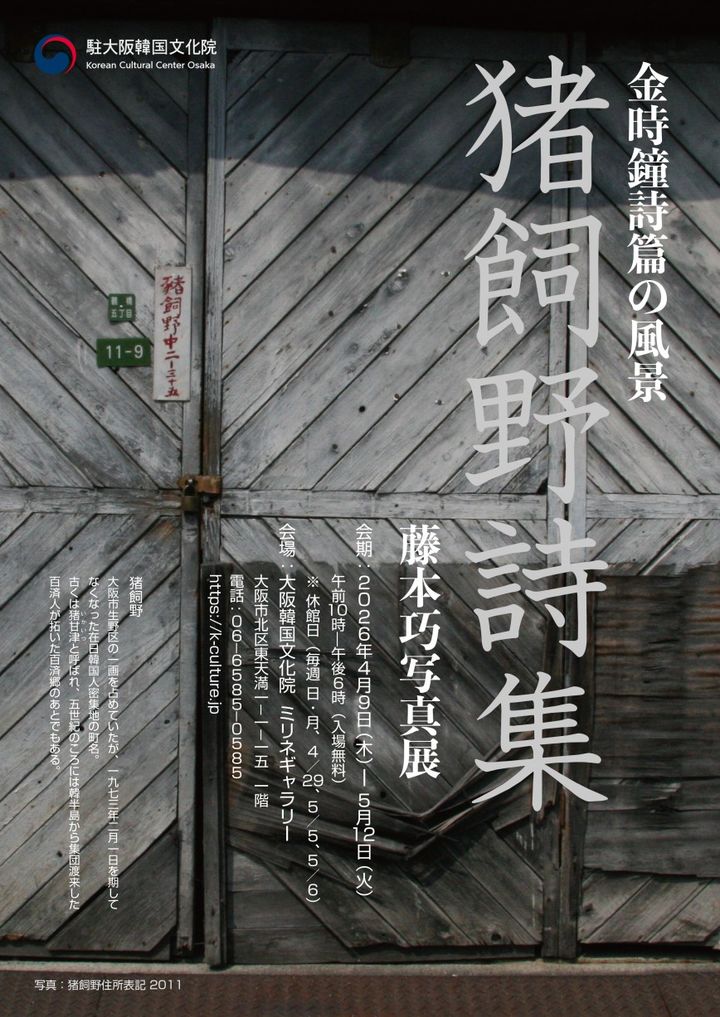 駐大阪韓国文化院
Korean Cultural Center Osaka
金時鐘詩篇の風景
猪飼野詩集
藤本巧写真展
会期：2026年4月9日（木）ー5月12日（火）
午前10時ー午後6時（入場無料）
※休館日（毎週 日・月、4／29、5／5、5／6）
会場：大阪韓国文化院 ミリネギャラリー
大阪市北区東天満一ー一ー一五 一階
電話：06ー6585ー0585
https://k-culture.jp
猪飼野
大阪市生野区の一画を占めていたが、一九七三年二月一日を期して
なくなった在日韓国人密集地の町名。
古くは猪甘津と呼ばれ、五世紀のころには韓半島から集団渡来した
百済人が拓いた百済郷のあとでもある。
猪飼野中二ー三十五
五丁目
11-9
写真：猪飼野住所表記 2011